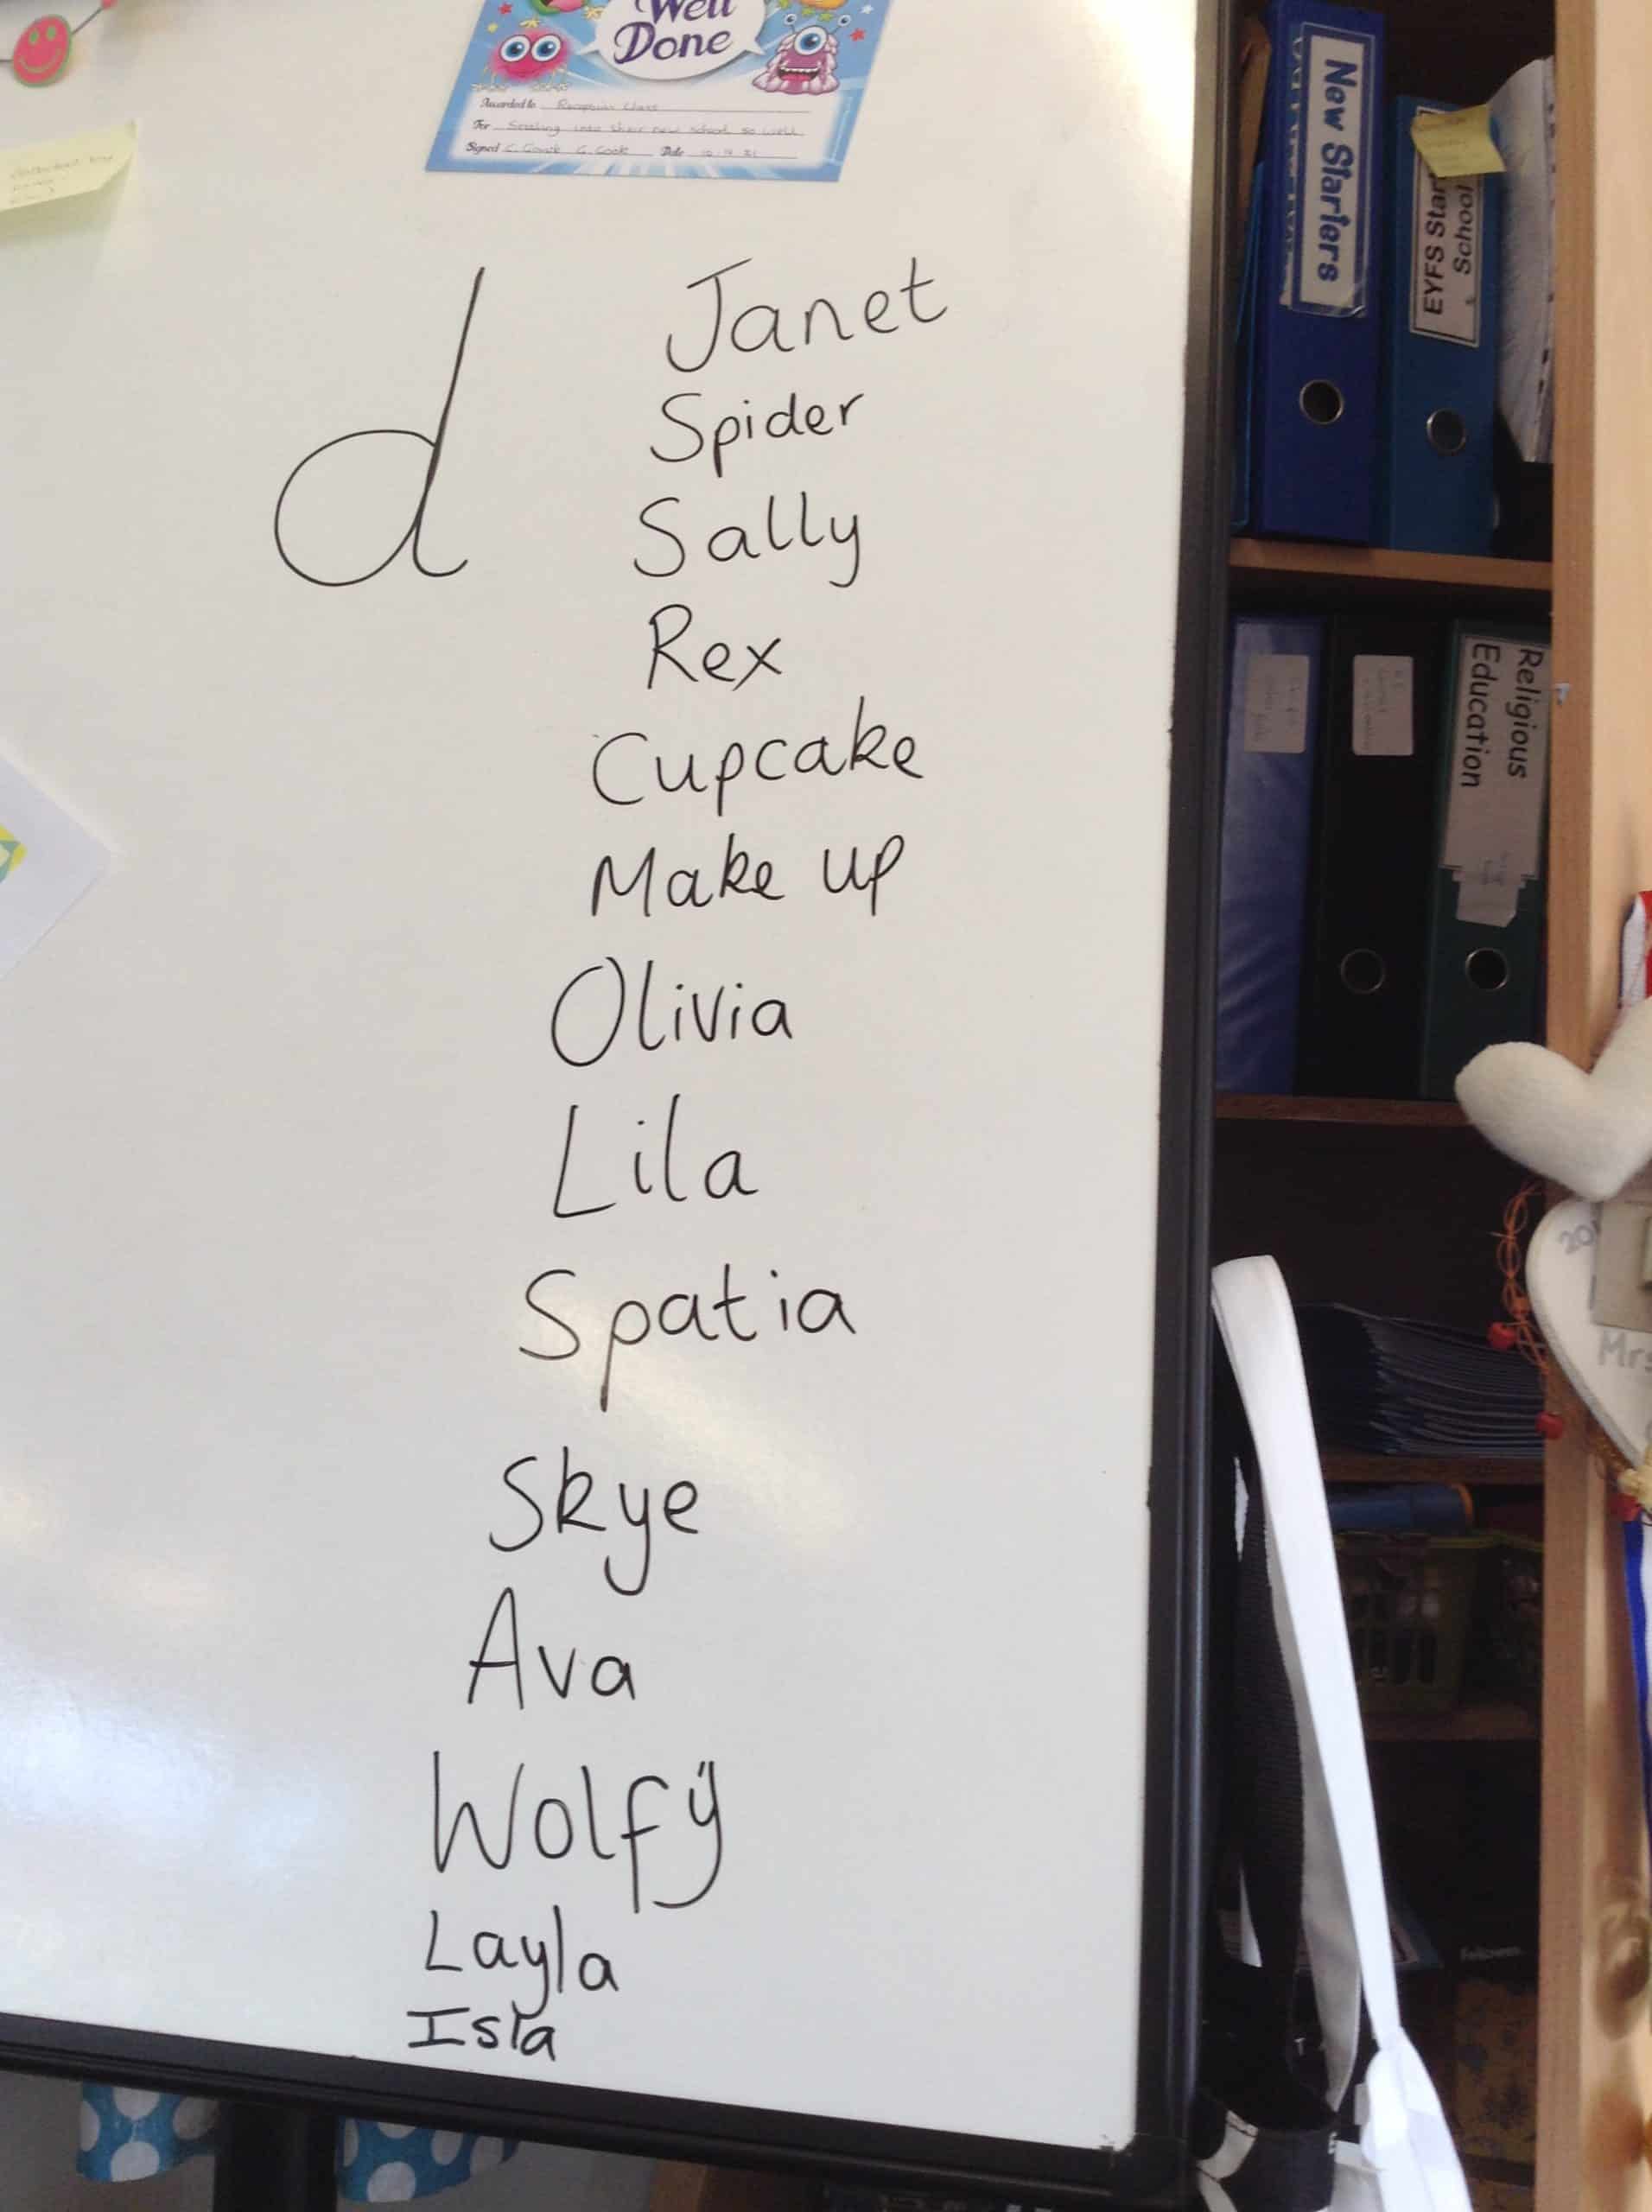 Well
Done
Awarded to Reception Class
For Settling into their new school so well
Signed C. G. Cook Date
d
Janet
Spider
Sally
Rex
Cupcake
Make up
Olivia
Lila
Spatia
Skye
Ava
Wolfy
Layla
Isla
New Starters
EYFS Star
School
Religious
Education
201
Mrs